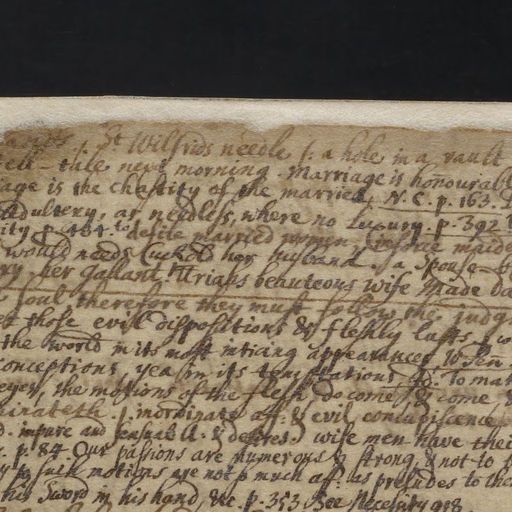 St Wilfrids needle /. a hole in a vault
tell tale next morning. Marriage is honourabl
age is the chastity of the married, N.C. p. 163.
Adultery, as needless, where no Luxury. p. 392
ity p. 484. to defile married women, before maide
would needs Cuckold her husband. a Spouse
her gallant Uriahs beauteous wife made Da
soul therefore they must follow the judg
those evil dispositions & fleshly lusts, w
the world in its most inticing appearances
conceptions, yea in its temptations, &c. to mat
eyes, the motions of the flesh do come & come
/. inordinate aff. & evil concupiscence
d impure and sensual A. & desires. wise men have thei
p. 84. Our passions are numerous & strong, & not to
such motions are not so much aff. as preludes to the
his sword in his hand, &c. p. 353 See Necessity 918.